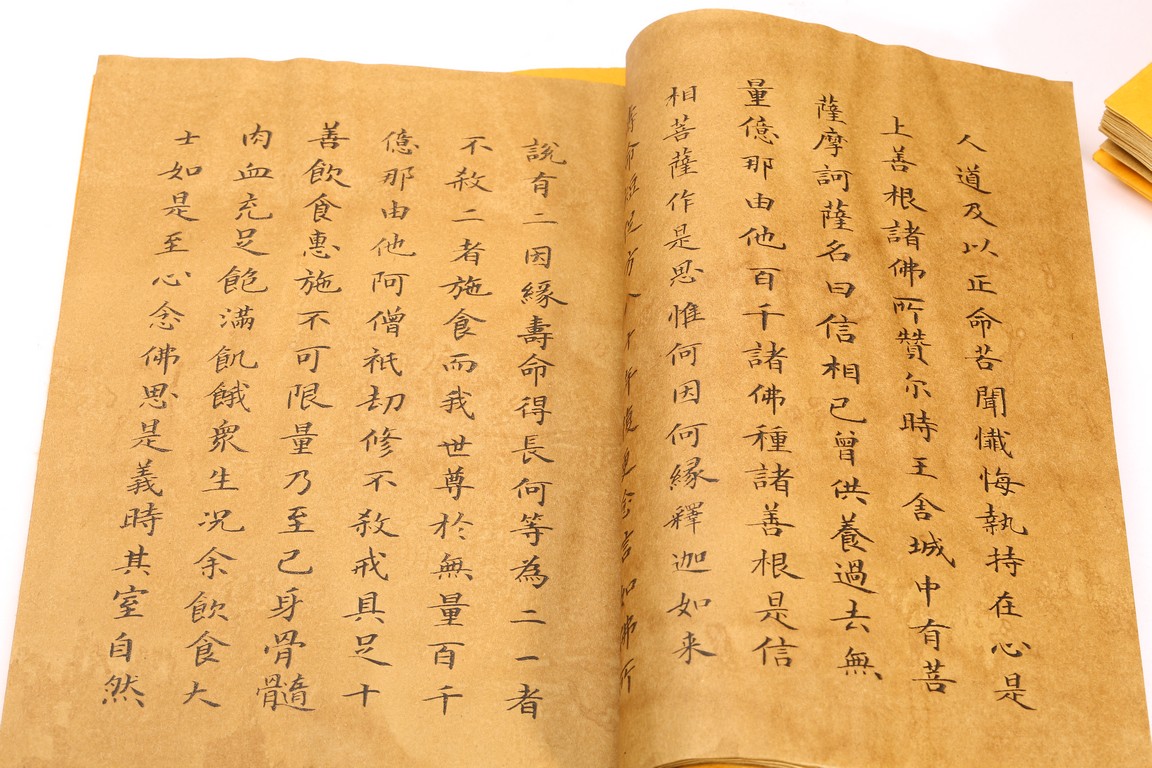 人道及以正命若聞懺悔執持在心是
上善根諸佛所贊尔時王舍城中有菩
薩摩訶薩名曰信相已曾供養過去無
量億那由他百千諸佛種諸善根是信
相菩薩作是思惟何因何緣釋迦如来
命念言如佛所
說有二因緣壽命得長何等為二一者
不殺二者施食而我世尊於無量百千
億那由他阿僧祇劫修不殺戒具足十
善飲食惠施不可限量乃至己身骨髓
肉血充足飽滿飢餓衆生況余飲食大
士如是至心念佛思是義時其室自然